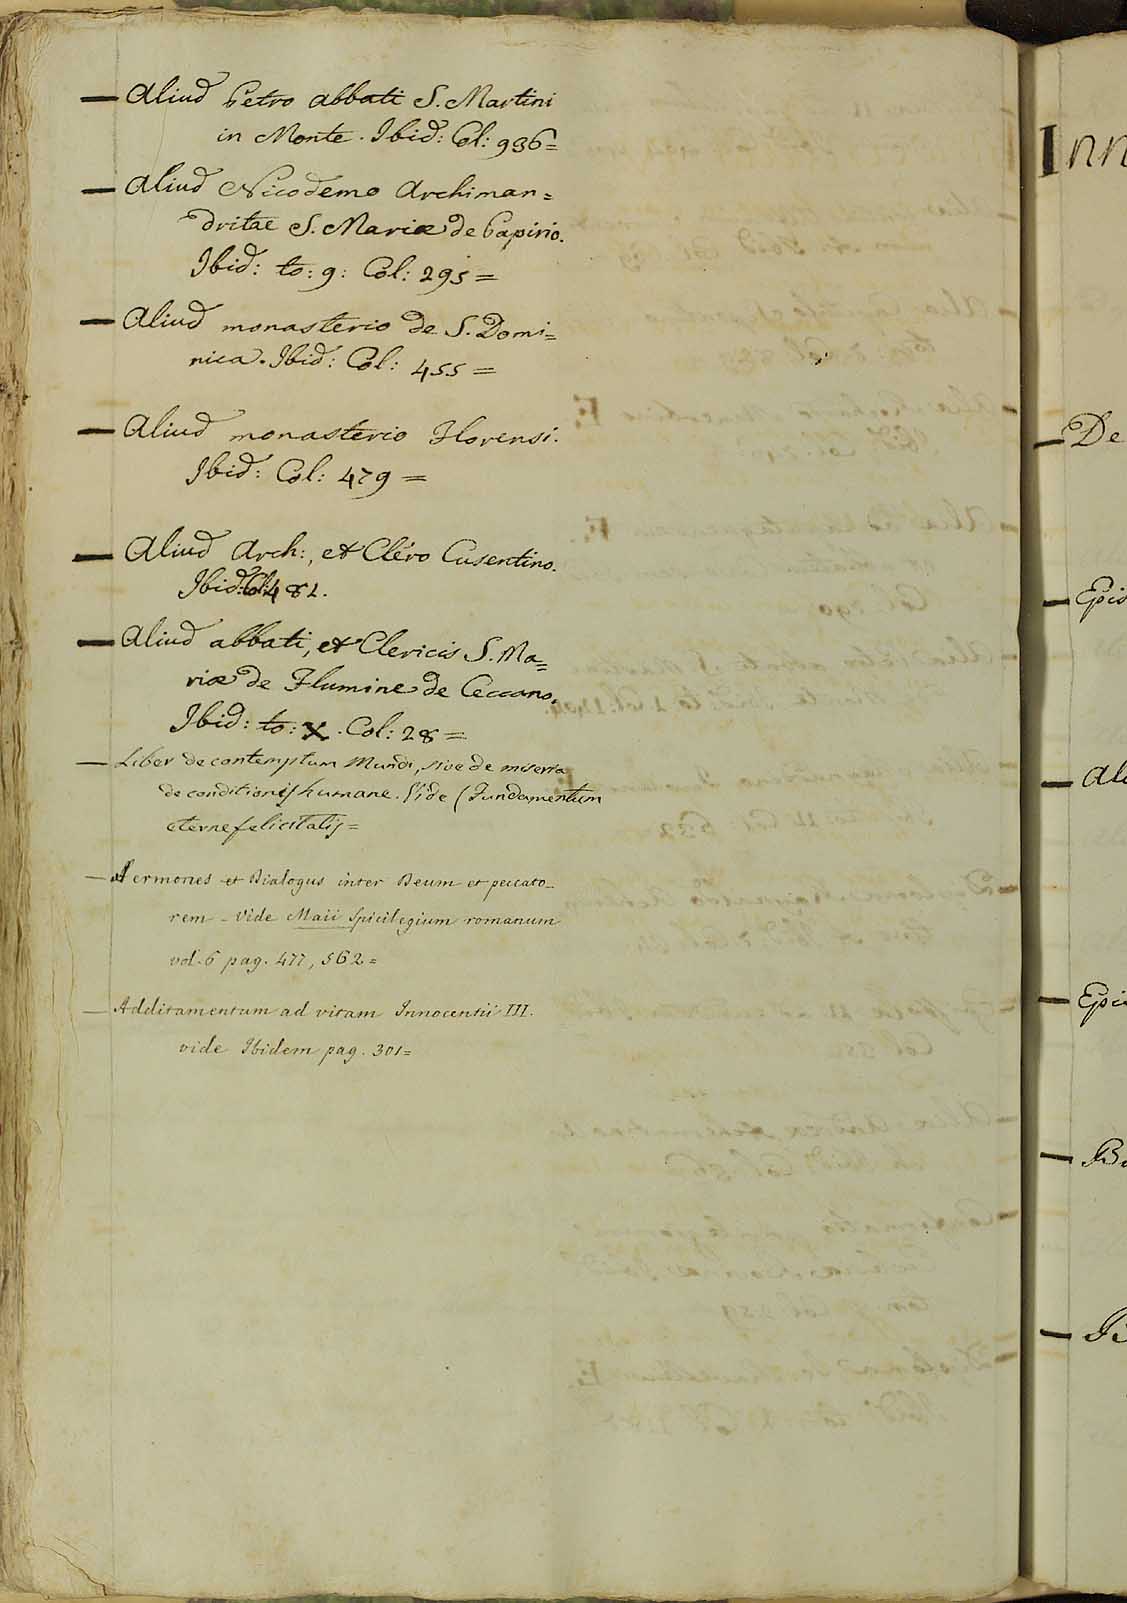 — Aliud Petro abbati S. Martini
in Monte. Ibid: Col: 936=
— Aliud Nicodemo Archiman=
dritae S. Mariæ de Papirio.
Ibid: to: 9: Col: 295=
— Aliud monasterio de S. Domi=
nica. Ibid: Col: 455=
— Aliud monasterio Florensi.
Ibid: Col: 479=
— Aliud Arch:, et Clero Cusentino.
Ibid: Col: 481.
— Aliud abbati, et Clericis S. Ma=
riæ de Flumine de Ceccano.
Ibid: to: X. Col: 28=
— Liber de contemptum Mundi, sive de miseria
de conditionis humane. Vide (Fundamentum
eterne felicitatis=
— Sermones et Dialogus inter Deum et peccato_
rem _ Vide Maii Spicilegium romanum
vol. 6 pag. 477, 562=
— Additamentum ad vitam Innocentii III.
vide Ibidem pag. 301=
Inn
— De
— Epis
— Ali
— Epis